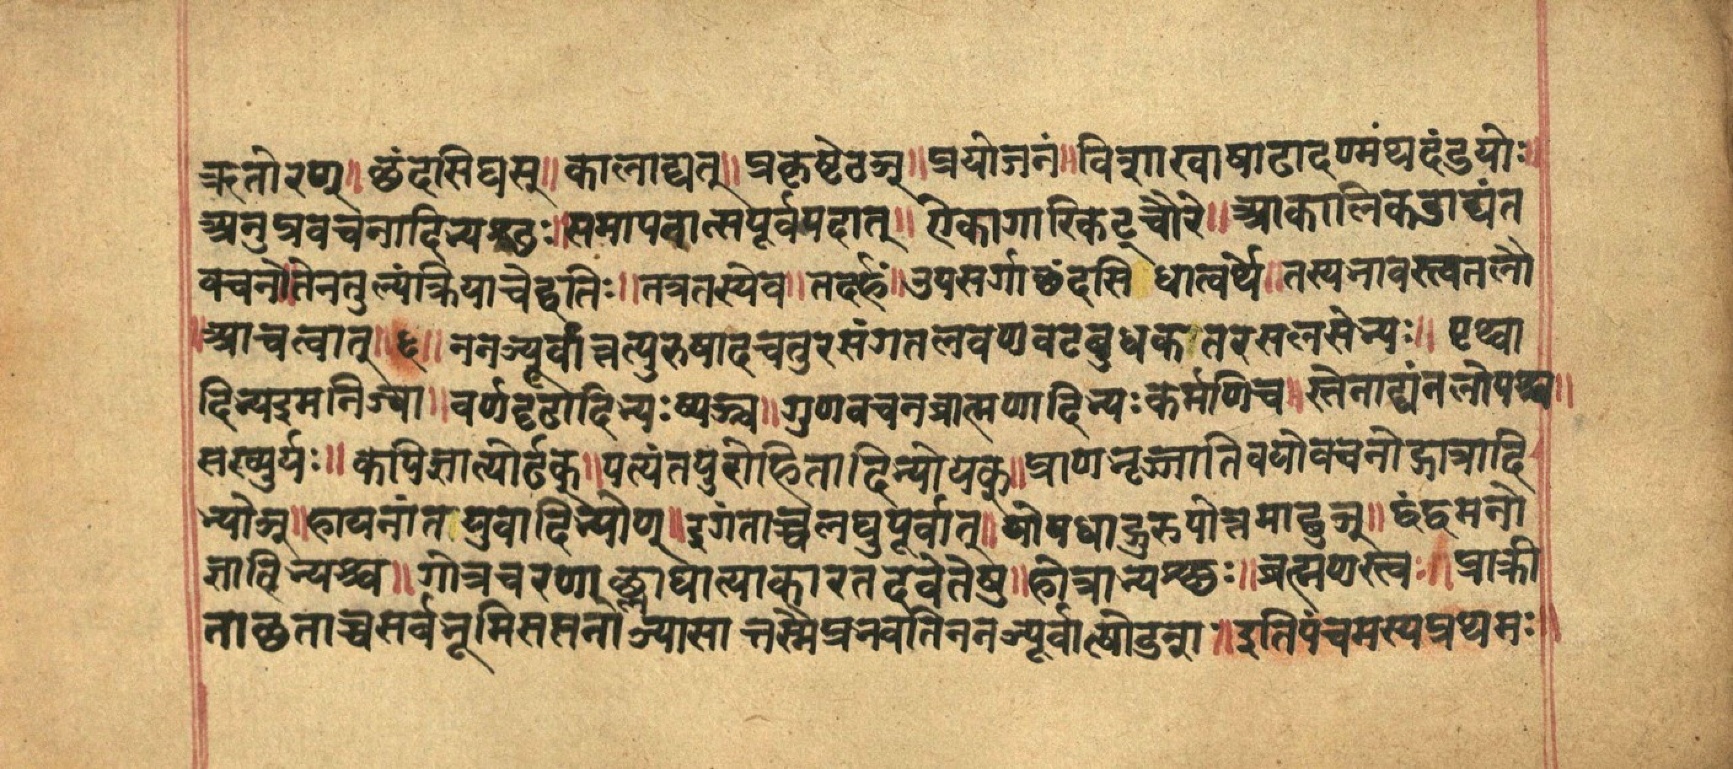 ऋतोरण्॥ छंदसिघस्॥ कालाद्यत्॥ प्रकृष्टेठञ्॥ प्रयोजनं॥ विशाखाषाढादण्मंथदंडयोः॥
अनुप्रवचनादिभ्यश्छः॥ समापनात्सपूर्वपदात्॥ ऐकागारिकट्चौरे॥ आकालिकडाद्यंत
वचने॥ तेनतुल्यंक्रियाचेद्वतिः॥ तत्रतस्येव॥ तदर्हं॥ उपसर्गाछंदसि धात्वर्थे॥ तस्यभावस्त्वतलौ
॥ आचत्वात्॥ ६॥ ननञ्पूर्वात्तत्पुरुषादचतुरसंगतलवणवटबुधकतरसलसेभ्यः॥ पृथ्वा
दिभ्यइमनिज्वा॥ वर्णदृढादिभ्यःष्यञ्च॥ गुणवचनब्राह्मणादिभ्यःकर्मणिच॥ स्तेनाद्यंनलोपश्च॥
सख्युर्यः॥ कपिज्ञात्योर्ढक्॥ पत्यंतपुरोहितादिभ्योयक्॥ प्राणभृज्जातिवयोवचनोद्गात्रादि
भ्योञ्॥ हायनांत युवादिभ्योण्॥ इगंताच्चलघुपूर्वात्॥ योपधाद्गुरुपोत्तमाद्वुञ्॥ द्वंद्वमनो
ज्ञादिभ्यश्च॥ गोत्रचरणाच्छ्लाघात्याकारतदवेतेषु॥ होत्राभ्यश्छः॥ ब्रह्मणस्त्वः॥ प्राक्क्री
ताछताच्चसर्वभूमिसप्तनोभ्यासा त्तस्मैप्रभवतिननञ्पूर्वात्योडन्या॥ इतिपंचमस्यप्रथमः॥